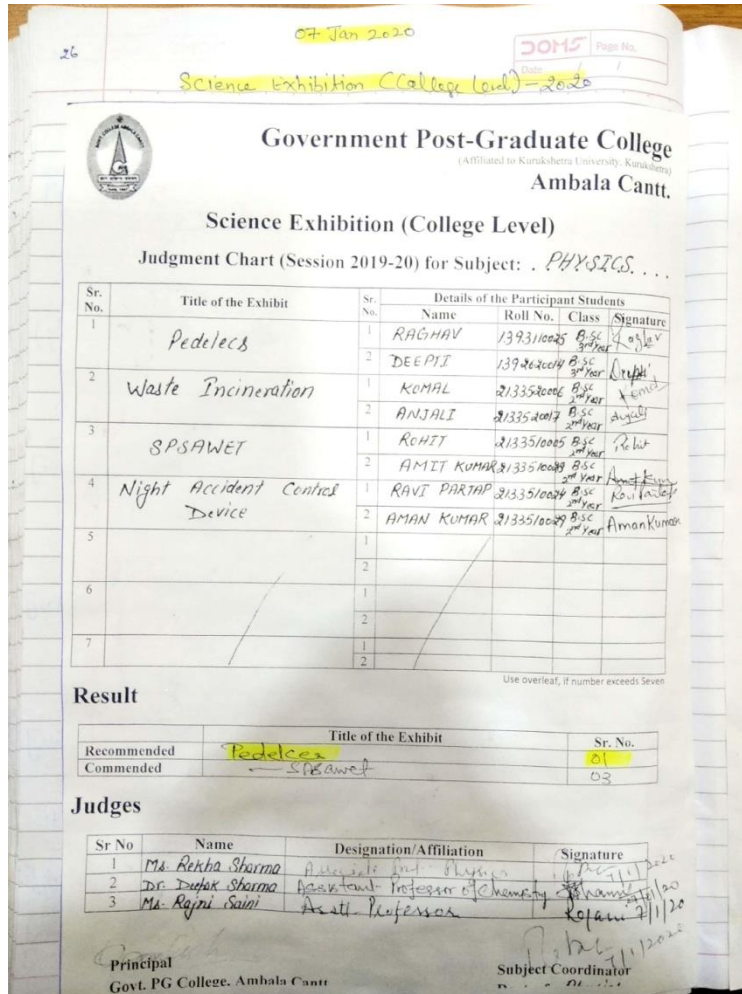 07 Jan 2020
26
DOMS Page No.
Date / /
Science Exhibition (College Level) - 2020
Government Post-Graduate College
(Affiliated to Kurukshetra University, Kurukshetra)
Ambala Cantt.
Science Exhibition (College Level)
Judgment Chart (Session 2019-20) for Subject: . PHYSICS. . . .
Sr. No. Title of the Exhibit Sr. No. Details of the Participant Students
Name Roll No. Class Signature
1 Pedelecs 1 RAGHAV 1393110025 B.Sc 3rd Year Raghav
2 DEEPTI B.Sc 3rd Year Deepti
2 Waste Incineration 1 KOMAL 2133520006 B.Sc 2nd Year Komal
2 ANJALI 2133520017 B.Sc 2nd Year Anjali
3 SPSAWET 1 ROHIT 2133510005 B.Sc 2nd Year Rohit
2 AMIT KUMAR B.Sc 2nd Year
4 Night Accident Control Device 1 RAVI PARTAP 2133510024 B.Sc 2nd Year
2 AMAN KUMAR 2133510029 B.Sc 2nd Year Aman Kumar
5 1
2
6 1
2
7 1
2
Use overleaf, if number exceeds Seven
Result
Title of the Exhibit Sr. No.
Recommended Pedelces 01
Commended — SPSawet 03
Judges
Sr No Name Designation/Affiliation Signature
1 Ms. Rekha Sharma Associate Prof. Physics 7/1/2020
2 Dr. Deepak Sharma Assistant Professor of Chemistry
3 Ms. Rajni Saini Asstt. Professor Rajani 7/1/20
7/1/2020
Principal Subject Coordinator
Govt. PG College, Ambala Cantt